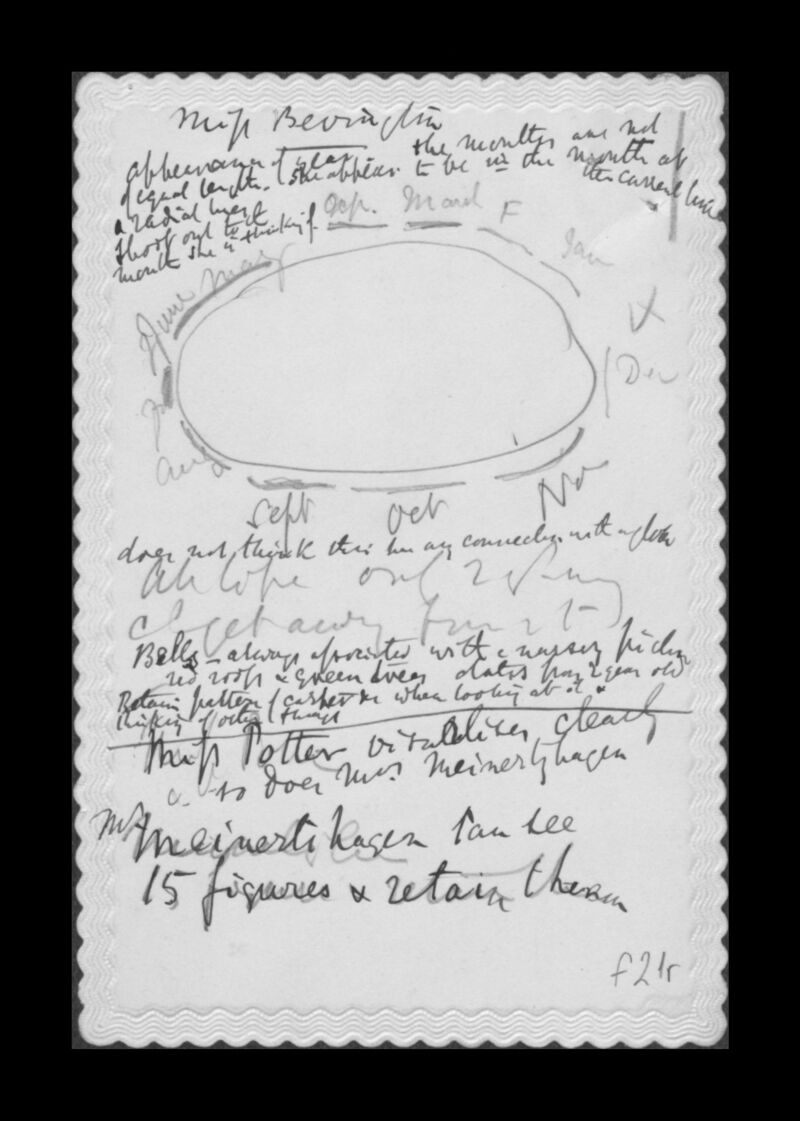 Miss Bevington
appearance of year the months are not
of equal length. She appears to be in the month at
a radial the current time
shoot out to the
month she is thinking of.
Ap. March F
Jan
May
June
X
Dec
Ju
Aug
Sept Oct Nov
does not think this has any connection with a clock
out
away from it
Bells – always associated with a nursery picture
red roofs & green trees dates from 2 year old
Retains pattern of carpet &c when looking at it &
thinking of other things
Miss Potter visualises clearly
so does Mrs Meinertzhagen
Mr
Meinertzhagen can see
15 figures & retain them
f21r